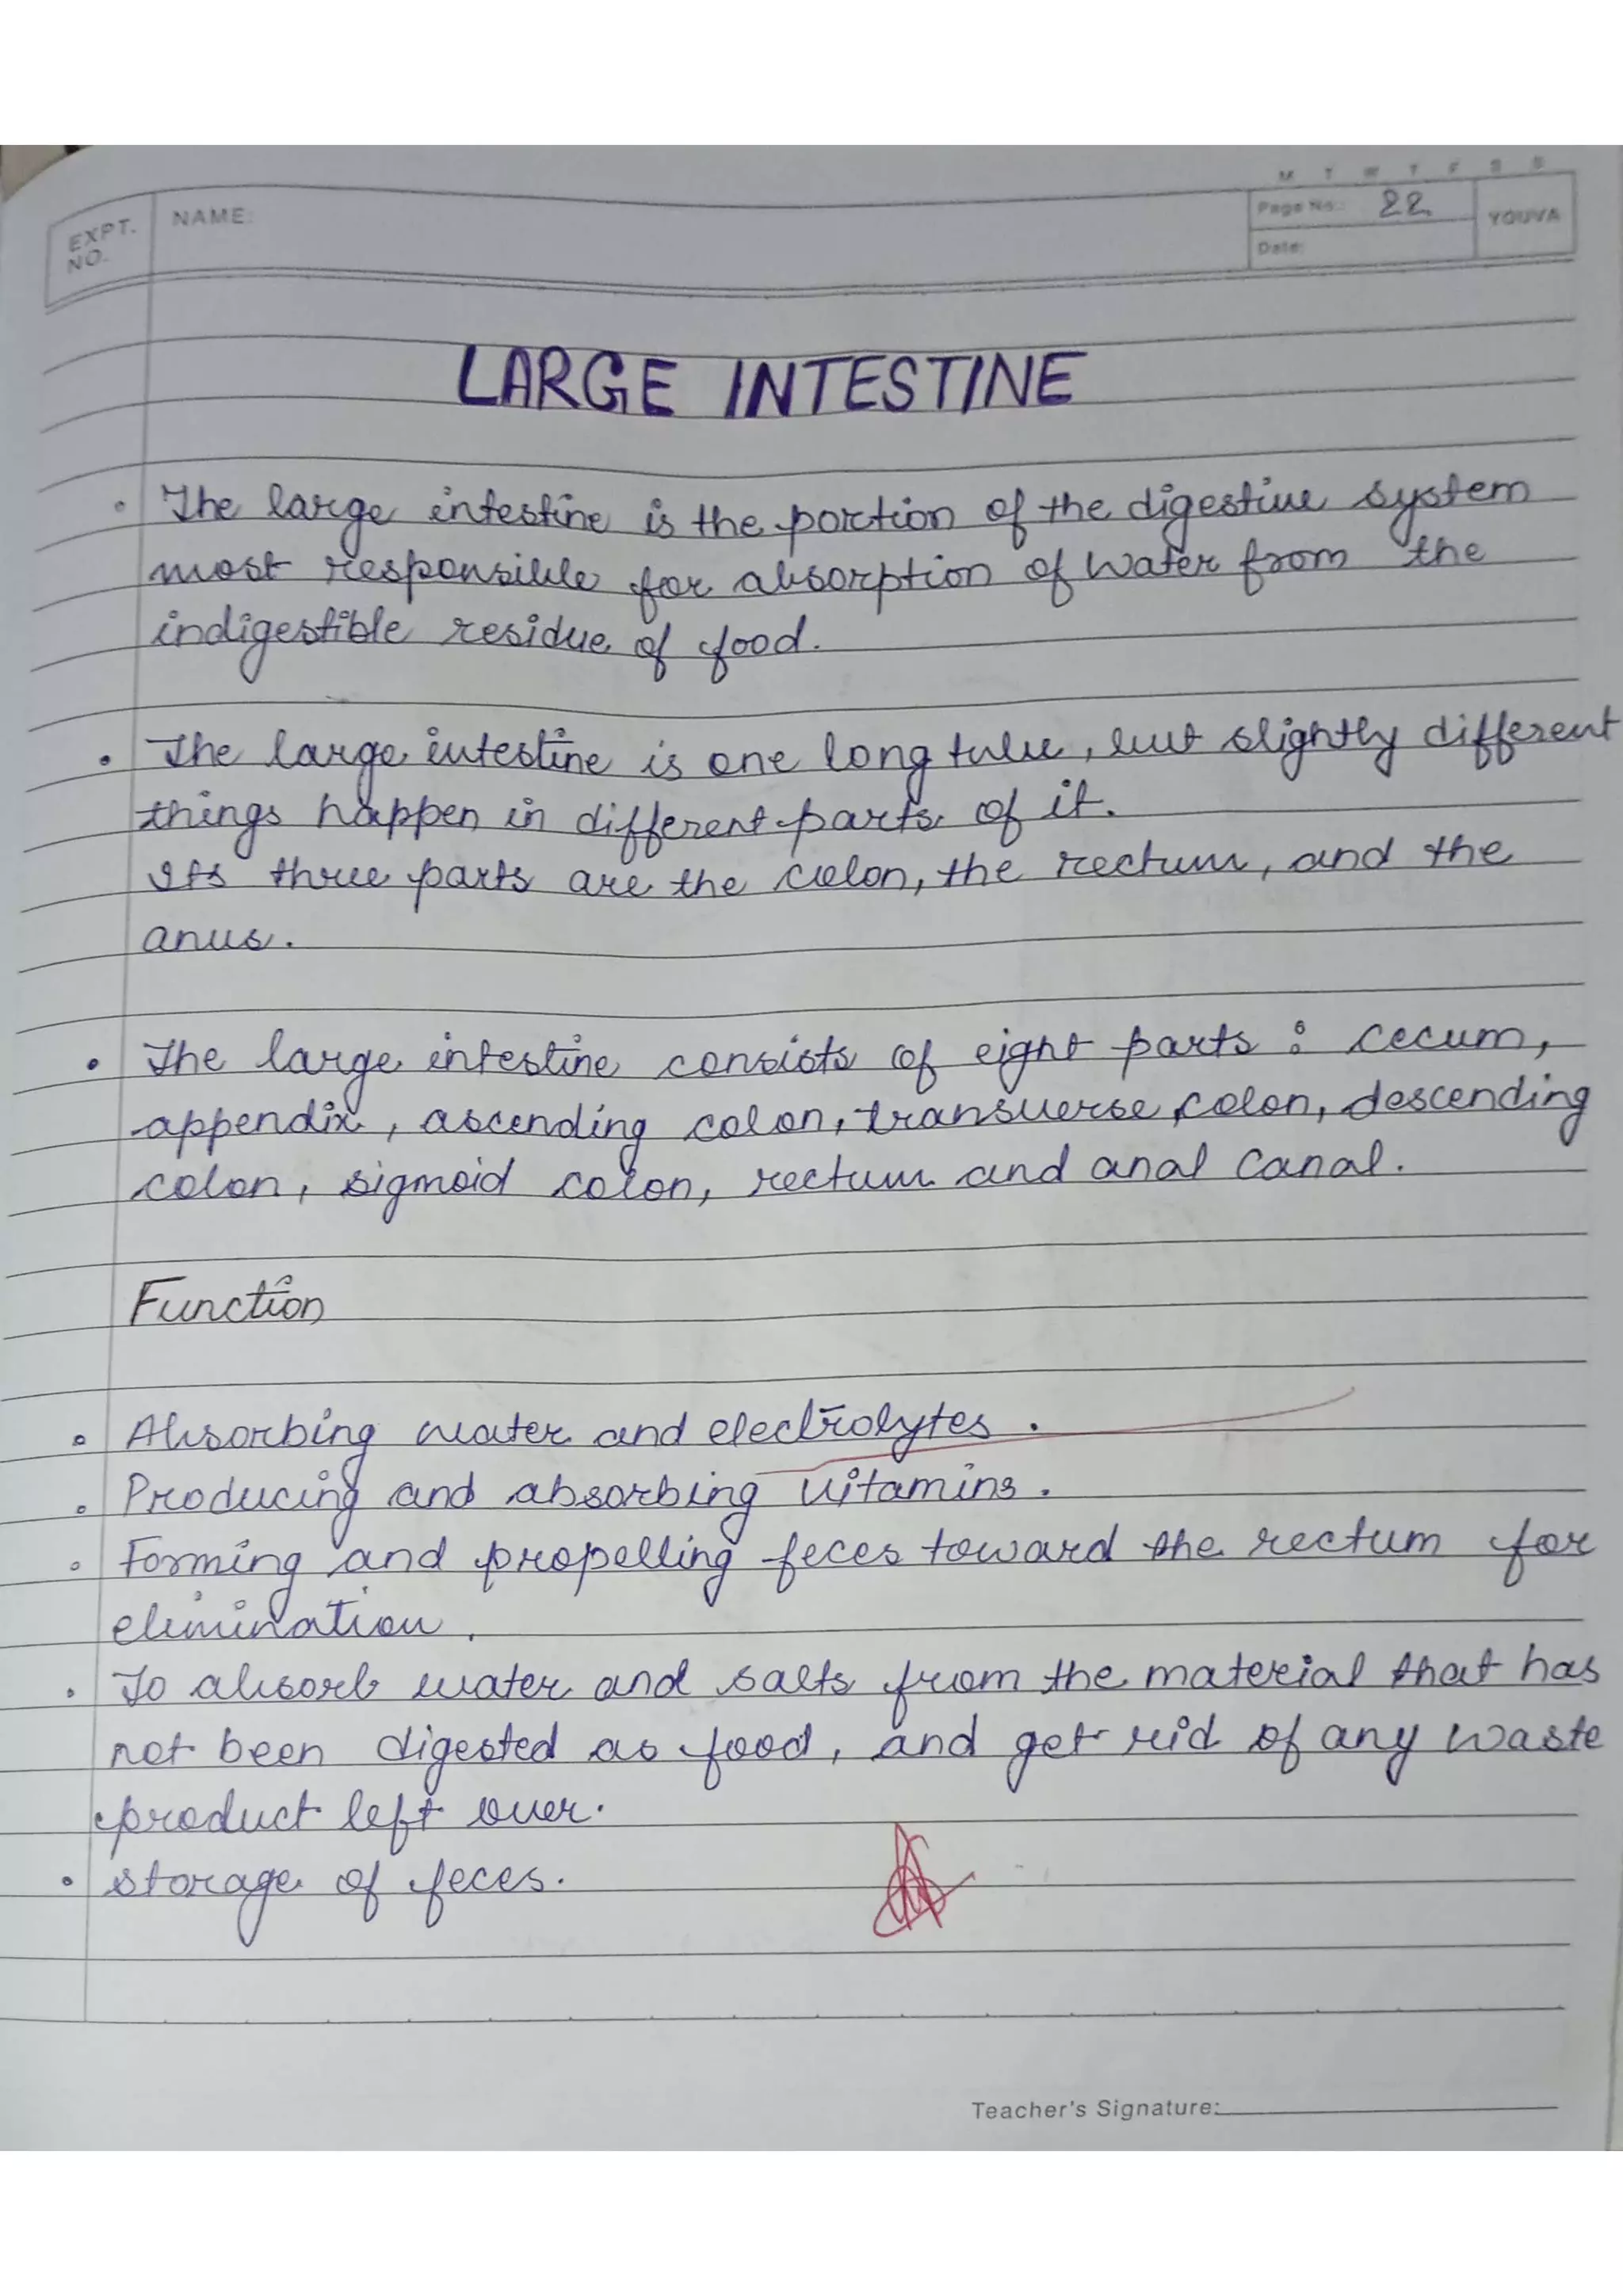 M T W T F S S
EXPT. NO. NAME: Page No.: 22 YOUVA
Date:
LARGE INTESTINE
• The large intestine is the portion of the digestive system
most responsible for absorption of water from the
indigestible residue of food.
• The large intestine is one long tube, but slightly different
things happen in different parts of it.
Its three parts are the colon, the rectum, and the
anus.
• The large intestine consists of eight parts : cecum,
appendix, ascending colon, transverse colon, descending
colon, sigmoid colon, rectum and anal canal.
Function
• Absorbing water and electrolytes.
• Producing and absorbing vitamins.
• Forming and propelling feces toward the rectum for
elimination.
• To absorb water and salts from the material that has
not been digested as food, and get rid of any waste
product left over.
• storage of feces.
Teacher's Signature: